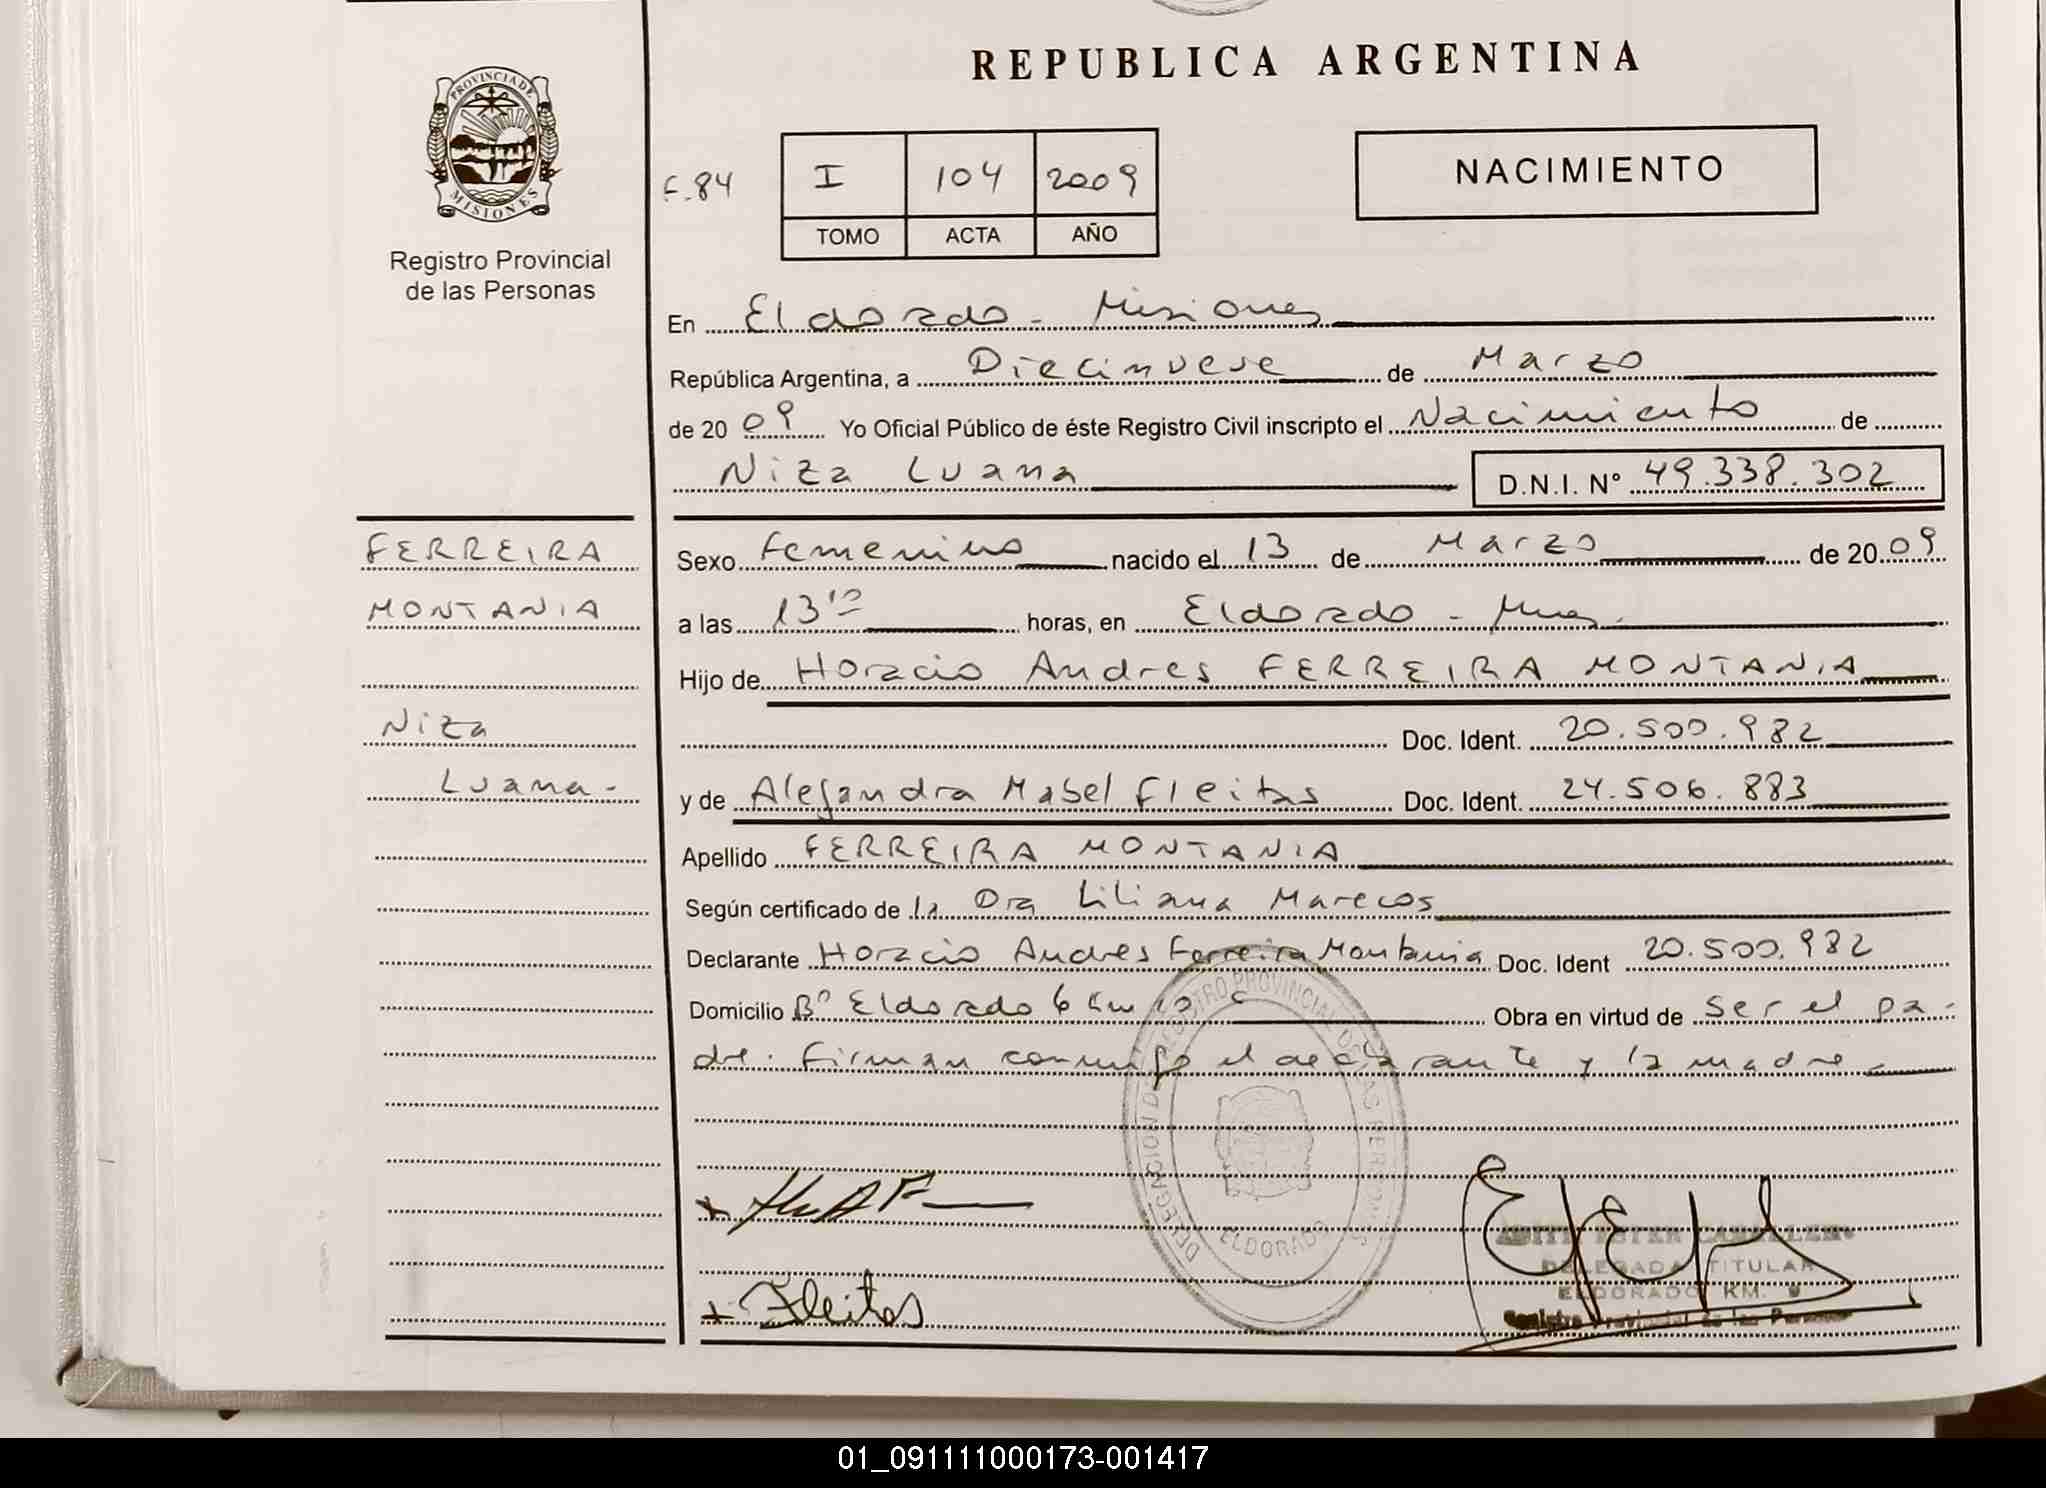 REPUBLICA ARGENTINA
PROVINCIA DE
MISIONES
Registro Provincial
de las Personas
F.84
I 104 2009
TOMO ACTA AÑO
NACIMIENTO
En Eldorado - Misiones
República Argentina, a Diecinueve de Marzo
de 20 09 Yo Oficial Público de éste Registro Civil inscripto el Nacimiento de
Niza Luana D.N.I. N° 49.338.302
FERREIRA
MONTANIA
Niza
Luana-
Sexo Femenino nacido el 13 de Marzo de 20 09
a las 13 10 horas, en Eldorado - Mnes.
Hijo de Horacio Andres FERREIRA MONTANIA
Doc. Ident. 20.500.982
y de Alejandra Mabel Fleitas Doc. Ident. 24.506.883
Apellido FERREIRA MONTANIA
Según certificado de la Dra Liliana Marecos
Declarante Horacio Andres Ferreira Montania Doc. Ident 20.500.982
Domicilio B° Eldorado 6 Km 10 Obra en virtud de ser el pa-
dre. Firman conmigo el declarante y la madre
DELEGACION DEL REGISTRO PROVINCIAL DE LAS PERSONAS
ELDORADO
+ Fleitas
DELEGADA TITULAR
ELDORADO KM. 9
Registro Provincial de las Personas
01_091111000173-001417